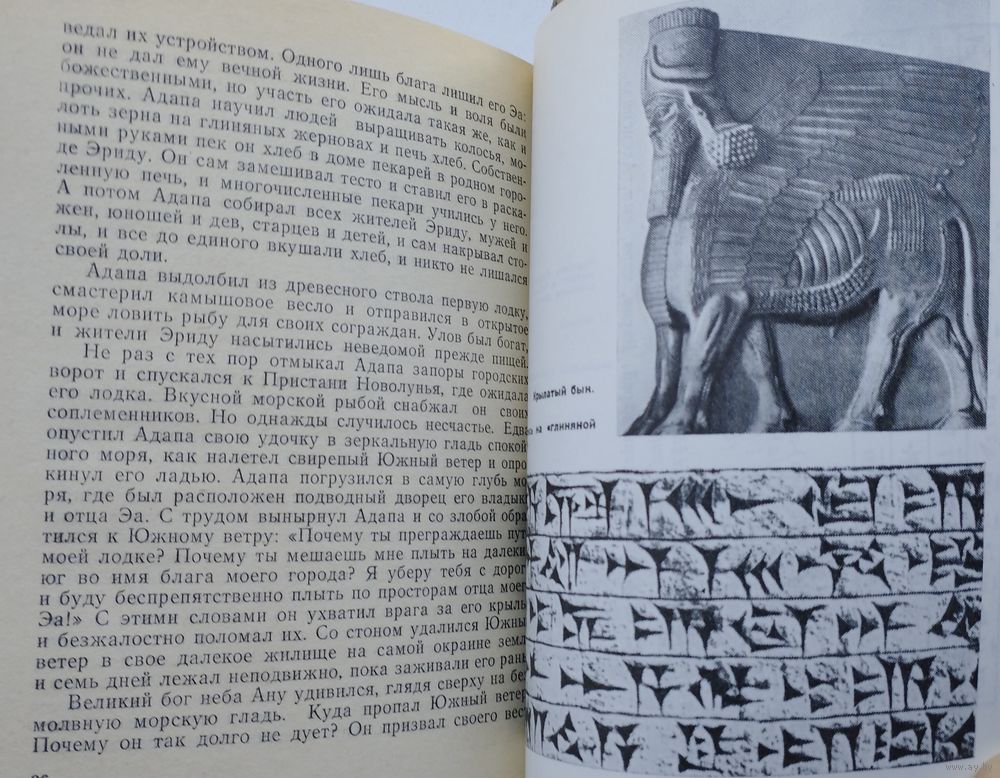 ведал их устройством. Одного лишь блага лишил его Эа:
он не дал ему вечной жизни. Его мысль и воля были
божественными, но участь его ожидала такая же, как и
прочих. Адапа научил людей выращивать колосья, мо-
лоть зерна на глиняных жерновах и печь хлеб. Собствен-
ными руками пек он хлеб в доме пекарей в родном горо-
де Эриду. Он сам замешивал тесто и ставил его в раска-
ленную печь, и многочисленные пекари учились у него.
А потом Адапа собирал всех жителей Эриду, мужей и
жен, юношей и дев, старцев и детей, и сам накрывал сто-
лы, и все до единого вкушали хлеб, и никто не лишался
своей доли.
Адапа выдолбил из древесного ствола первую лодку,
смастерил камышовое весло и отправился в открытое
море ловить рыбу для своих сограждан. Улов был богат,
и жители Эриду насытились неведомой прежде пищей.
Не раз с тех пор отмыкал Адапа запоры городских
ворот и спускался к Пристани Новолунья, где ожидала
его лодка. Вкусной морской рыбой снабжал он своих
соплеменников. Но однажды случилось несчастье. Едва
опустил Адапа свою удочку в зеркальную гладь спокой
ного моря, как налетел свирепый Южный ветер и опро
кинул его ладью. Адапа погрузился в самую глубь мо
ря, где был расположен подводный дворец его владык
и отца Эа. С трудом вынырнул Адапа и со злобой обра
тился к Южному ветру: «Почему ты преграждаешь пут
моей лодке? Почему ты мешаешь мне плыть на далеки
юг во имя блага моего города? Я уберу тебя с дорог
и буду беспрепятственно плыть по просторам отца моег
Эа!» С этими словами он ухватил врага за его крыль
и безжалостно поломал их. Со стоном удалился Южны
ветер в свое далекое жилище на самой окраине земл
и семь дней лежал неподвижно, пока заживали его ран
Великий бог неба Ану удивился, глядя сверху на без
молвную морскую гладь. Куда пропал Южный ветер
Почему он так долго не дует? Он призвал своего вес
Крылатый бык.
на «глиняной
www.ay.by